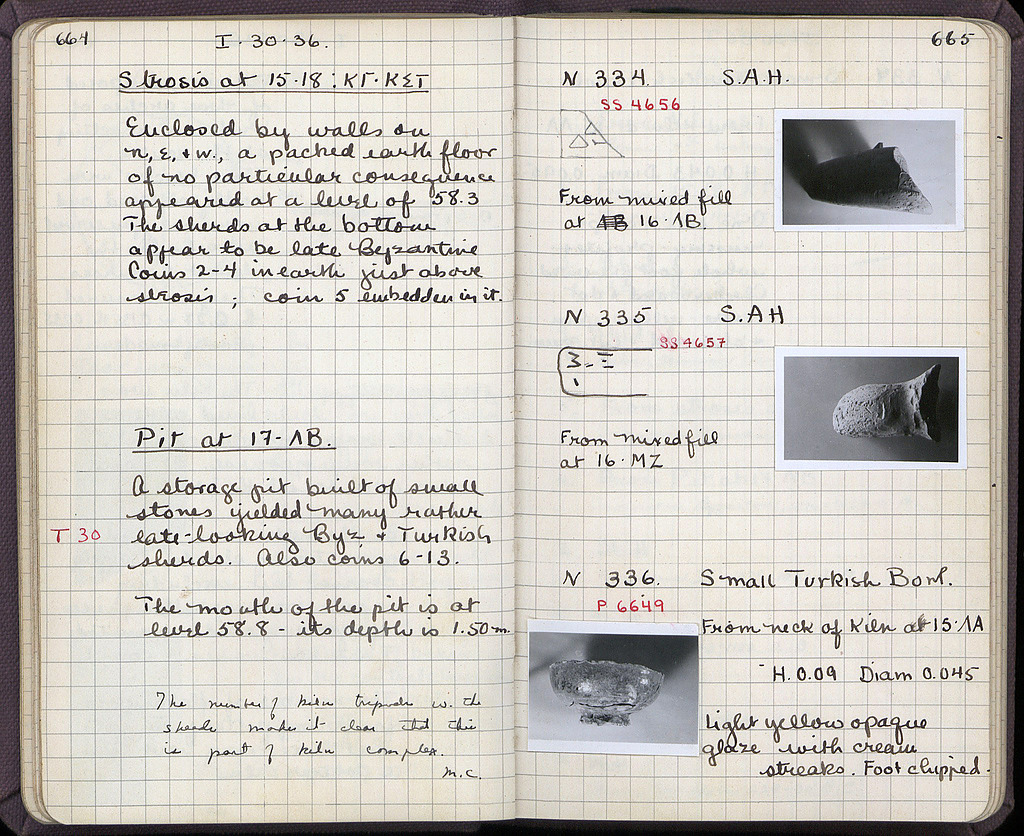 664
I·30·36.
Strosis at 15·18 : ΚΓ·ΚΣΤ
Enclosed by walls on
n, E, + w., a packed earth floor
of no particular consequence
appeared at a level of 58.3
The sherds at the bottom
appear to be late Byzantine
Coins 2-4 in earth just above
strosis ; coin 5 embedden in it.
Pit at 17-ΛΒ.
A storage pit built of small
stones yielded many rather
T 30 late-looking Byz + Turkish
sherds. Also coins 6-13.
The mouth of the pit is at
level 58.8 - its depth is 1.50 m.
The number of kiln tripods in the
sherds makes it clear that this
is part of kiln complex.
M.C.
665
N 334. S.A.H.
SS 4656
From mixed fill
at 16·ΛΒ.
N 335 S.AH
SS 4657
From mixed fill
at 16·ΜΖ
N 336. Small Turkish Bowl.
P 6649
From neck of Kiln at 15·ΛΑ
H. 0.09 Diam 0.045
Light yellow opaque
glaze with cream
streaks. Foot chipped.